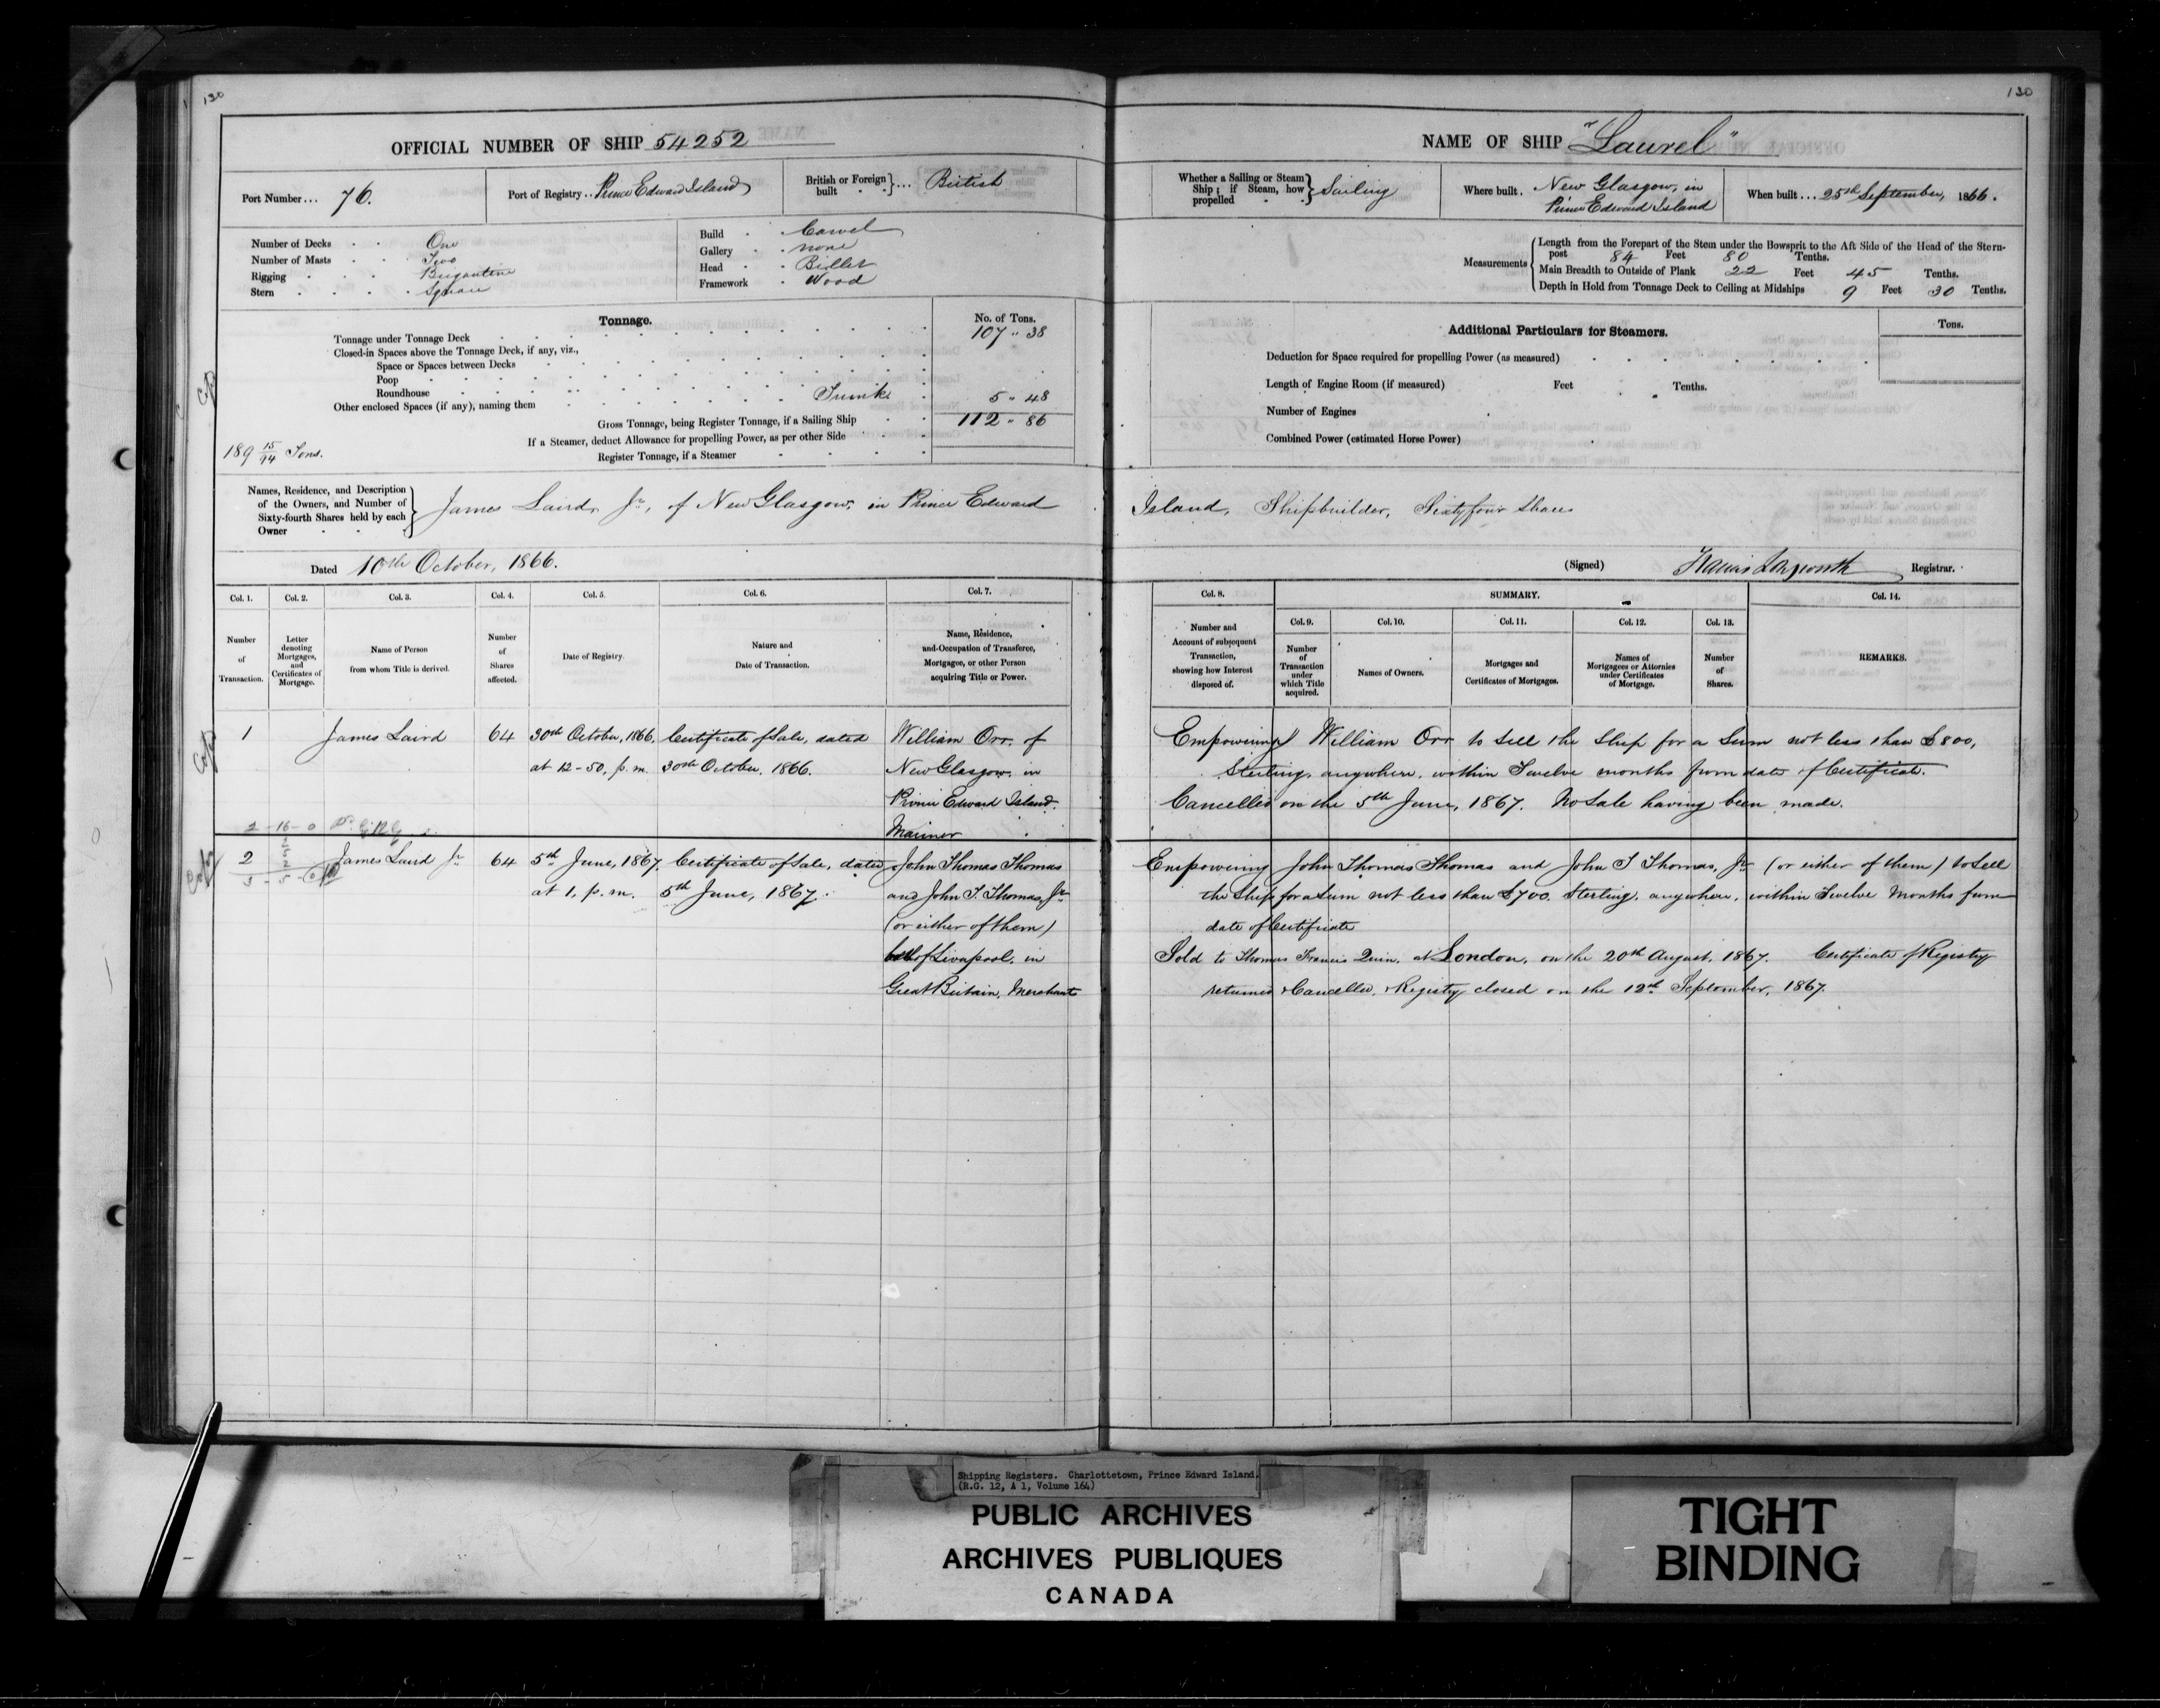 130
OFFICIAL NUMBER OF SHIP 54252
Port Number... 76.
Port of Registry.. Prince Edward Island
British or Foreign built } ... British
Number of Decks One
Number of Masts Two
Rigging Brigantine
Stern Square
Build Carvel
Gallery none
Head Billet
Framework Wood
Tonnage.
No. of Tons.
Tonnage under Tonnage Deck 107 " 38
Closed-in Spaces above the Tonnage Deck, if any, viz.,
Space or Spaces between Decks
Poop
Roundhouse
Other enclosed Spaces (if any), naming them Trunk 5 " 48
Gross Tonnage, being Register Tonnage, if a Sailing Ship 112 " 86
If a Steamer, deduct Allowance for propelling Power, as per other Side
Register Tonnage, if a Steamer
189 15/94 Tons.
Names, Residence, and Description of the Owners, and Number of Sixty-fourth Shares held by each Owner } James Laird, Jr, of New Glasgow, in Prince Edward
Dated 10th October, 1866.
Col. 1. Col. 2. Col. 3. Col. 4. Col. 5. Col. 6. Col. 7.
Number of Transaction.
Letter denoting Mortgages, and Certificates of Mortgage.
Name of Person from whom Title is derived.
Number of Shares affected.
Date of Registry.
Nature and Date of Transaction.
Name, Residence, and Occupation of Transferee, Mortgagee, or other Person acquiring Title or Power.
1 James Laird 64 30th October, 1866, Certificate of Sale, dated William Orr, of
at 12-50, p.m. 30th October, 1866. New Glasgow, in
Prince Edward Island.
Mariner
2 James Laird Jr 64 5th June, 1867, Certificate of Sale, dated John Thomas Thomas
at 1, p.m. 5th June, 1867. and John T. Thomas, Jr
(or either of them)
both of Liverpool, in
Great Britain, Merchants
130
NAME OF SHIP "Laurel"
Whether a Sailing or Steam Ship; if Steam, how propelled } Sailing
Where built. New Glasgow, in
Prince Edward Island
When built... 25th September, 1866.
Measurements
Length from the Forepart of the Stem under the Bowsprit to the Aft Side of the Head of the Stern-
post 84 Feet 80 Tenths.
Main Breadth to Outside of Plank 22 Feet 45 Tenths.
Depth in Hold from Tonnage Deck to Ceiling at Midships 9 Feet 30 Tenths.
Additional Particulars for Steamers.
Tons.
Deduction for Space required for propelling Power (as measured)
Length of Engine Room (if measured) Feet Tenths.
Number of Engines
Combined Power (estimated Horse Power)
Island, Shipbuilder, Sixty four Shares
(Signed) Francis Longworth Registrar.
Col. 8. SUMMARY. Col. 14.
Col. 9. Col. 10. Col. 11. Col. 12. Col. 13.
Number and Account of subsequent Transaction, showing how Interest disposed of.
Number of Transaction under which Title acquired.
Names of Owners.
Mortgages and Certificates of Mortgages.
Names of Mortgagees or Attornies under Certificates of Mortgage.
Number of Shares.
REMARKS.
Empowering William Orr to sell the Ship for a Sum not less than £800,
Sterling, anywhere, within Twelve months from date of Certificate.
Cancelled on the 5th June, 1867. No Sale having been made.
Empowering John Thomas Thomas and John T Thomas, Jr (or either of them) to Sell
the Ship for a Sum not less than £700 Sterling, anywhere, within Twelve Months from
date of Certificate
Sold to Thomas Francis Quin, at London, on the 20th August, 1867. Certificate of Registry
returned & Cancelled, & Registry closed on the 12th September, 1867.
Shipping Registers. Charlottetown, Prince Edward Island.
(R.G. 12, A 1, Volume 164)
PUBLIC ARCHIVES
ARCHIVES PUBLIQUES
CANADA
TIGHT
BINDING